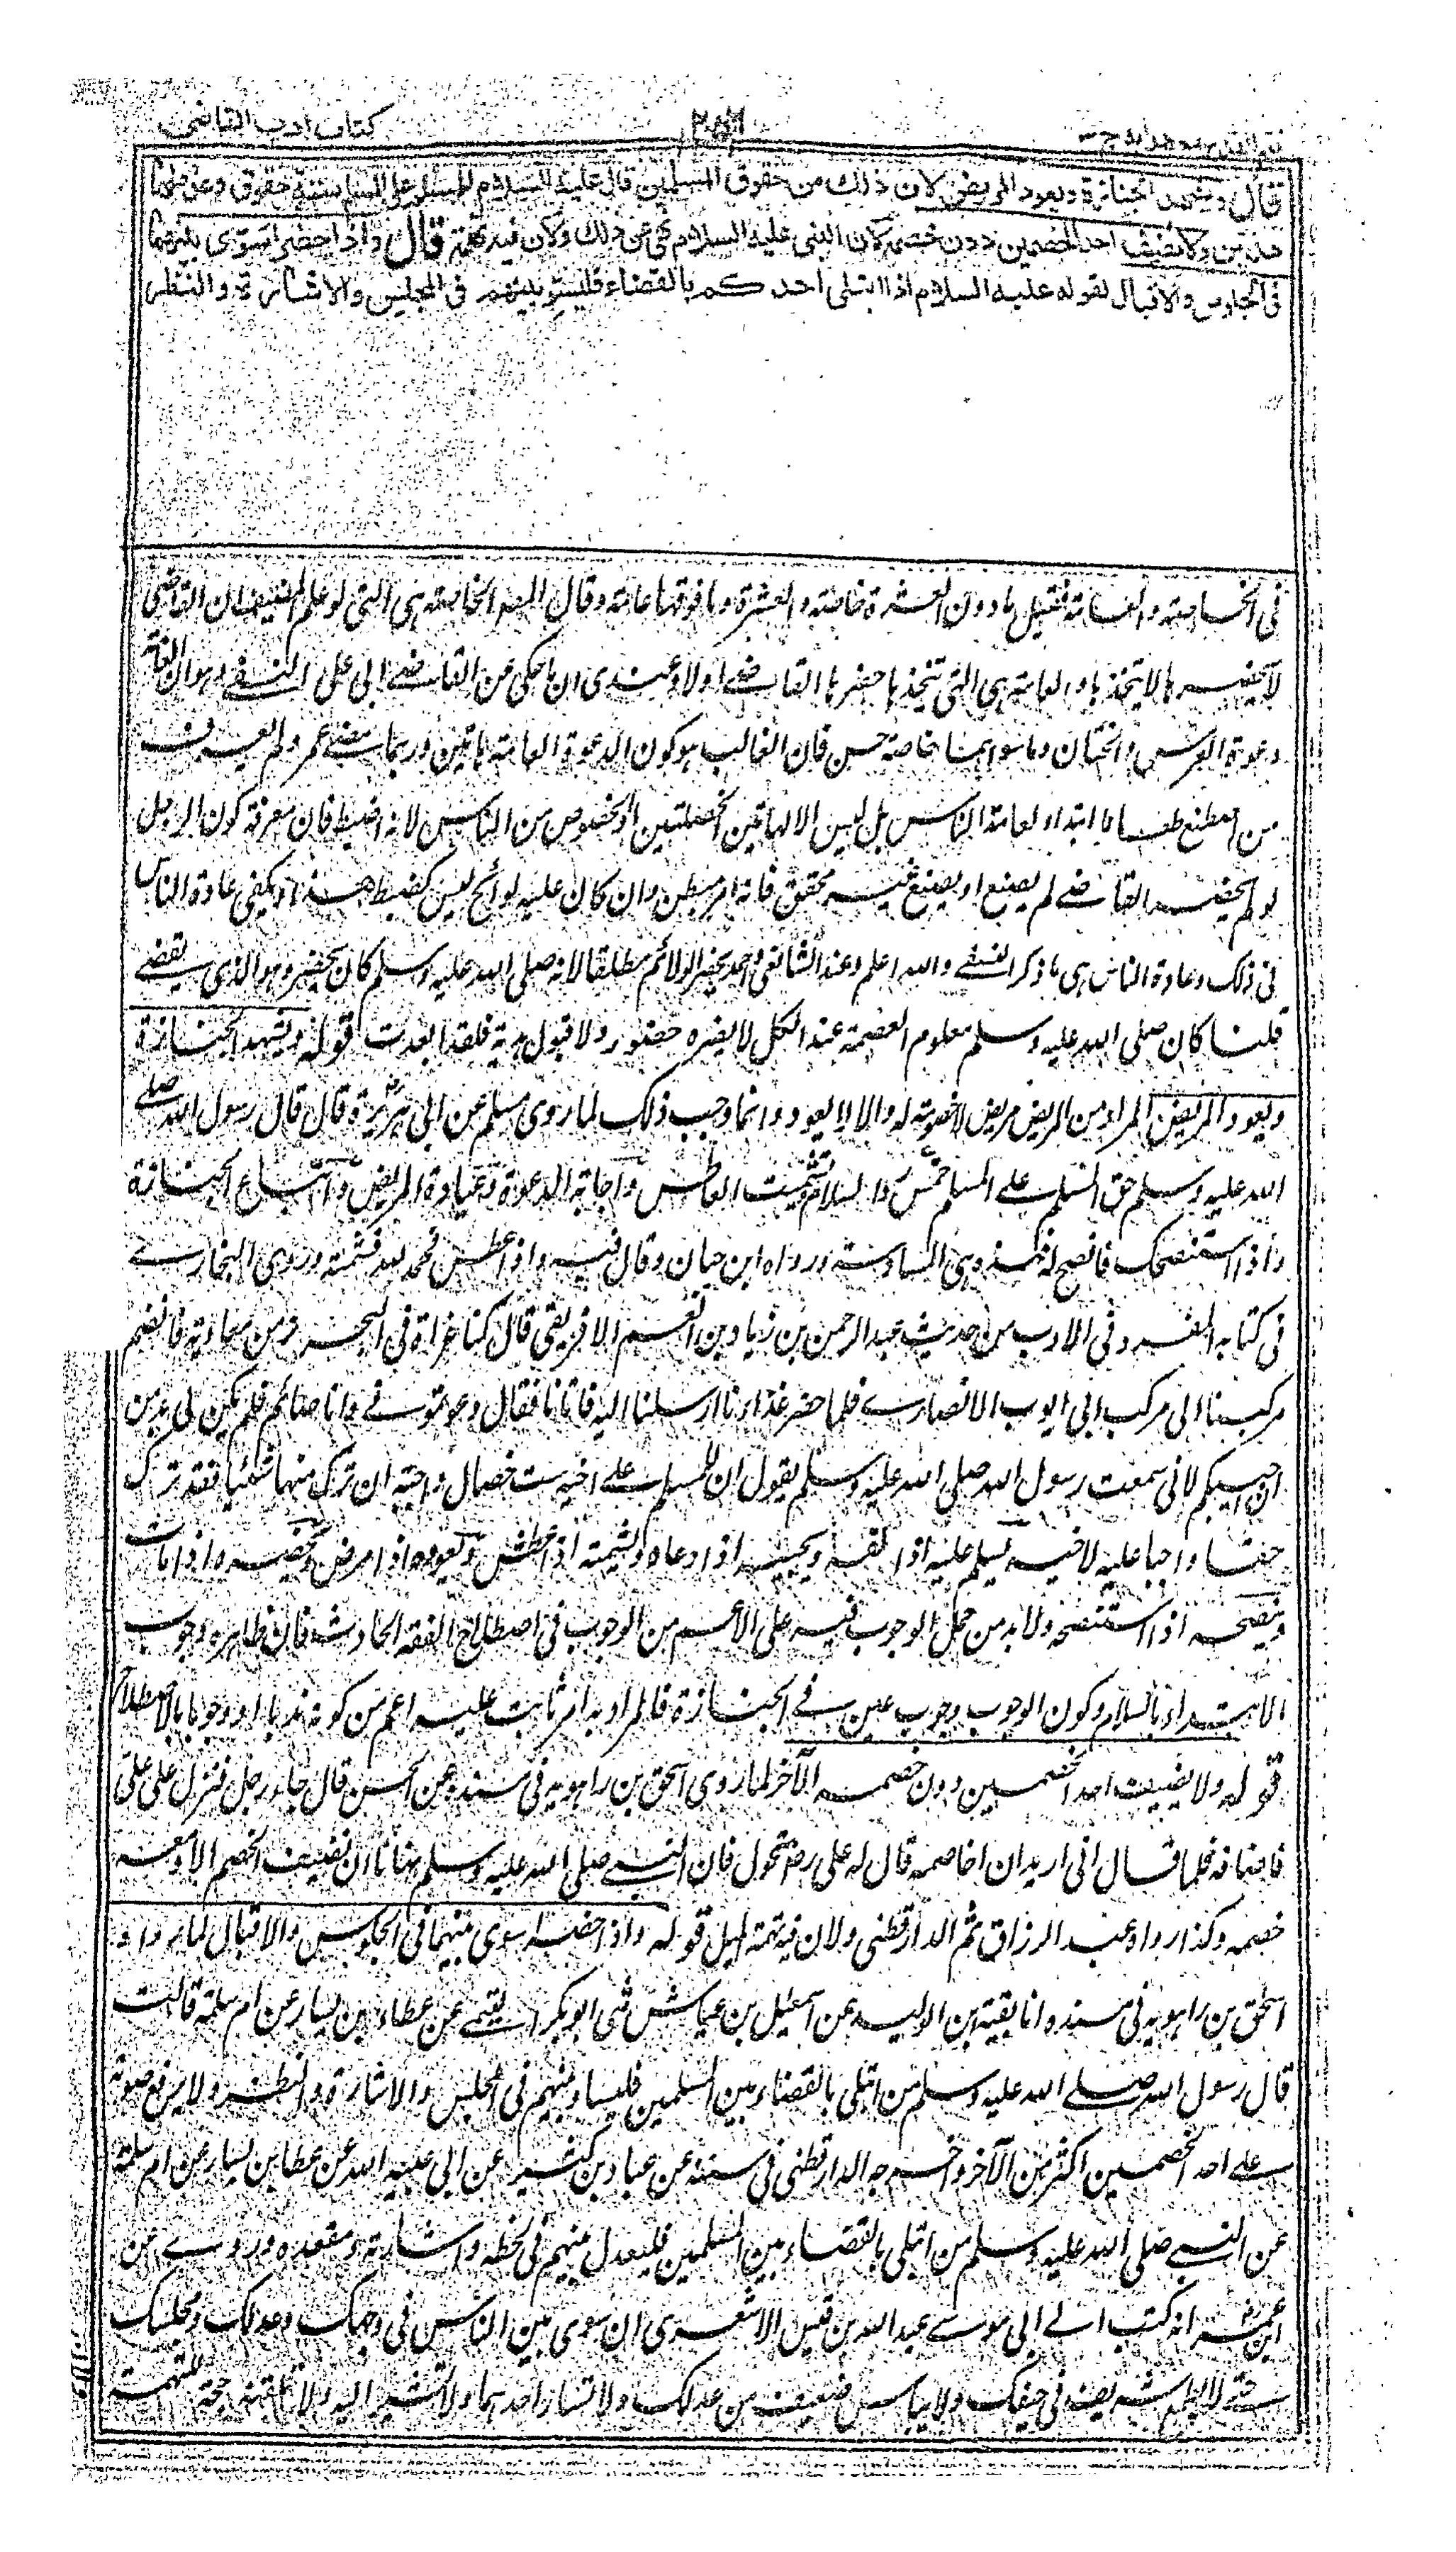 كتاب ادب القاضي
٢٥٦
قال ويشهد الجنازة ويعود المريض لان ذلك من حقوق المسلمين قال عليه السلام للمسلم على المسلم ستة حقوق وعد منها
هذين ولا يضيف احد الخصمين دون خصمه لان النبي عليه السلام نهى عن ذلك ولان فيه تهمة قال واذا حضرا سوّى بينهما
فى الجلوس والاقبال لقوله عليه السلام اذا ابتلى احدكم بالقضاء فليسوّ بينهم فى المجلس والاشارة والنظر
فى الخاصة والعامة فقيل ما دون العشرة خاصة والعشرة وما فوقها عامة وقال المص الخاصة هى التى لو علم المضيف ان القاضى
لا يحضرها لا يتخذها والعامة هى التى يتخذها حضرها القاضى اولا وعندى ان ما حكى عن القاضى ابى على النسفى وهو ان العامة
دعوة العرس والختان وما سواهما خاصة حسن فان الغالب هو كون الدعوة العامة هاتين وربما مضى عمر ولم يعرف
من اصطنع طعاما ابتداء لعامة الناس بل ليس الا لهاتين الخصلتين او لخصوص من الناس لانه اضبط فان معرفة كون الرجل
لو لم يحضر القاضى لم يصنع او يصنع غير محقق فانه امر مبطن وان كان عليه لوائح ليس كضبط هذا ويكفى عادة الناس
فى ذلك وعادة الناس هى ما ذكر النسفى والله اعلم وعند الشافعى واحمد يحضر الولائم مطلقا لانه صلى الله عليه وسلم كان يحضر وهو الذى يقضى
قلنا كان صلى الله عليه وسلم معلوم العصمة عند الكل لا يضره حضور ولا قبول هدية فلقد ابعدت قوله ويشهد الجنازة
ويعود المريض المراد من المريض مريض لا خصومة له والا لا يعوده وانما وجب ذلك لما روى مسلم عن ابى هريرة قال قال رسول الله صلى
الله عليه وسلم حق المسلم على المسلم خمس رد السلام وتشميت العاطس واجابة الدعوة وعيادة المريض واتباع الجنازة
واذا استنصحك فانصح له فهذه هى السادسة ورواه ابن حبان وقال فيه واذا عطس فحمد الله فشمته وروى البخارى
فى كتابه المفرد فى الادب من حديث عبد الرحمن بن زياد بن انعم الافريقى قال كنا غزاة فى البحر زمن معاوية فانضم
مركبنا الى مركب ابى ايوب الانصارى فلما حضر غذاؤنا ارسلنا اليه فاتانا فقال دعوتمونى وانا صائم فلم يكن لى بد من
ان اجيبكم لانى سمعت رسول الله صلى الله عليه وسلم يقول ان للمسلم على اخيه ست خصال واجبة ان ترك منها شيئا فقد ترك
حقا واجبا عليه لاخيه يسلم عليه اذا لقيه ويجيبه اذا دعاه ويشمته اذا عطس ويعوده اذا مرض ويحضره اذا مات
وينصحه اذا استنصحه ولا بد من حمل الوجوب فيه على الاعم من الوجوب فى اصطلاح الفقه الحادث فان ظاهره وجوب
الابتداء بالسلام وكون الوجوب وجوب عين فى الجنازة فالمراد به امر ثابت عليه اعم من كونه ندبا او وجوبا بالاصطلاح
قوله ولا يضيف احد الخصمين دون خصمه الآخر لما روى اسحق بن راهويه فى مسنده عن الحسن قال جاء رجل فنزل على على
فاضافه فلما قال انى اريد ان اخاصم قال له على رض تحول فان النبى صلى الله عليه وسلم نهانا ان نضيف الخصم الا ومعه
خصمه وكذا رواه عبد الرزاق ثم الدارقطنى ولان فيه تهمة الميل قوله واذا حضرا سوى بينهما فى الجلوس والاقبال لما رواه
اسحق بن راهويه فى مسنده انا بقية بن الوليد عن اسمعيل بن عياش ثنى ابو بكر التيمى عن عطاء بن يسار عن ام سلمة قالت
قال رسول الله صلى الله عليه وسلم من ابتلى بالقضاء بين المسلمين فليساو بينهم فى المجلس والاشارة والنظر ولا يرفع صوته
على احد الخصمين اكثر من الآخر واخرجه الدارقطنى فى سننه عن عباد بن كثير عن ابى عبيد الله عن عطا بن يسار عن ام سلمة
عن النبى صلى الله عليه وسلم من ابتلى بالقضاء بين المسلمين فليعدل بينهم فى لحظه واشارته ومقعده وروى عن
عمر رض انه كتب الى ابى موسى عبد الله بن قيس الاشعرى ان سوى بين الناس فى وجهك وعدلك ومجلسك
حتى لا يطمع شريف فى حيفك ولا يياس ضعيف من عدلك ولا تسار احدهما ولا تشير اليه ولا تلقنه حجة للتهمة